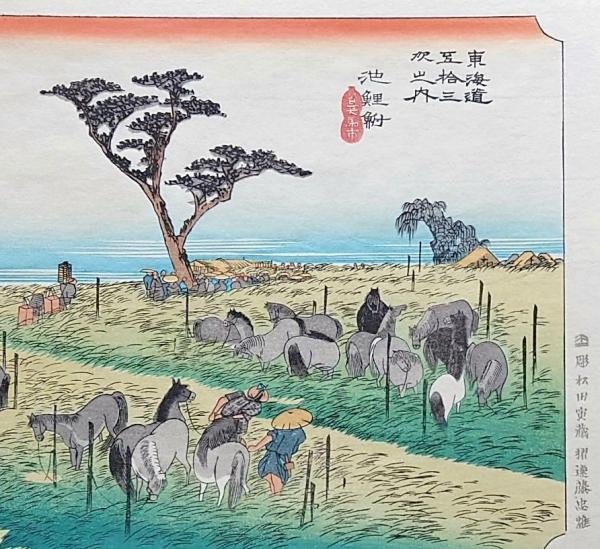 東海道
五拾三
次之内
池鯉鮒
首夏馬市
彫松田寅蔵 摺遠藤忠雄